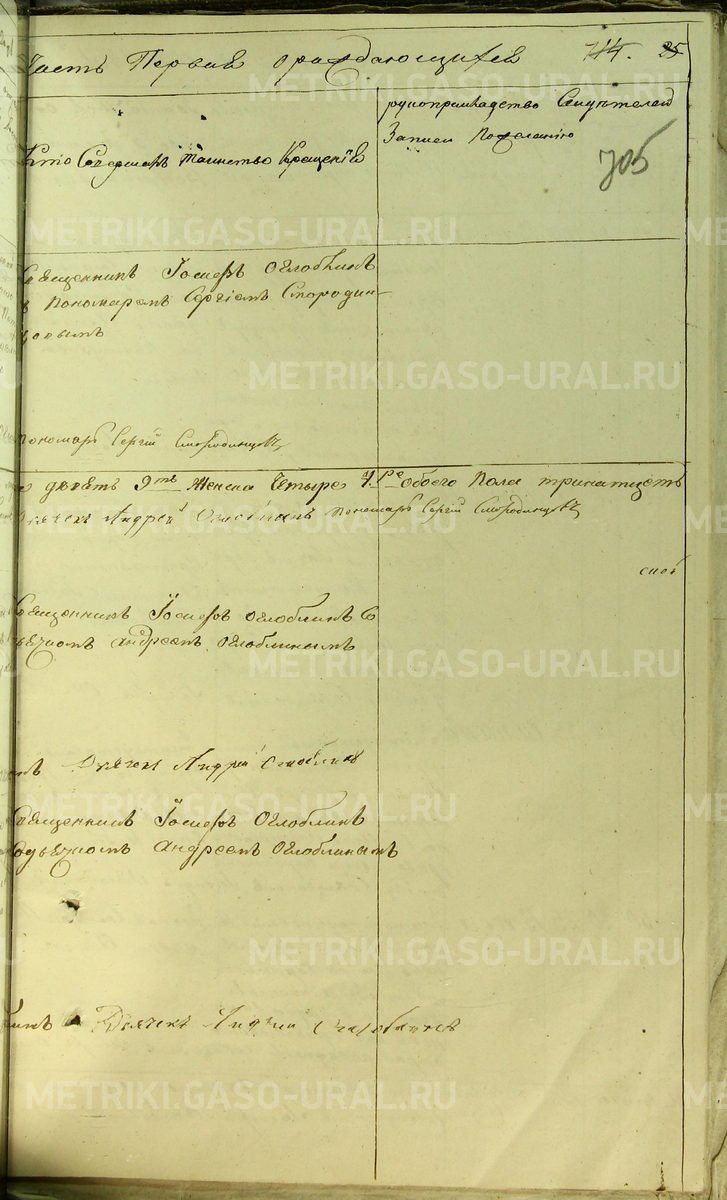 Часть Первая ораждающихся 714. 25
Кто Совершалъ таинство Крещенїя
рукоприкладство Свидѣтелей
Записи Пожеланию
705
Священникъ Їосифъ Оглоблинъ
Пономаремъ Сергіемъ Смородин-
цовымъ
пономарь Сергiй Смородинцовъ
девять 9ть Женска Четыре 4.ре обоего Пола тринатцеть
Дьячекъ Андрей Оглоблинъ Пономарь Сергiй Смородинцовъ
Священникъ Їосифъ Оглоблинъ Со
дьячкомъ Андреемъ Оглоблинымъ
Дьячекъ Андрей Оглоблинъ
Священникъ Їосифъ Оглоблинъ
Содьячкомъ Андреемъ Оглоблинымъ
Дьячекъ Андрей Оглоблинъ
METRIKI.GASO-URAL.RU